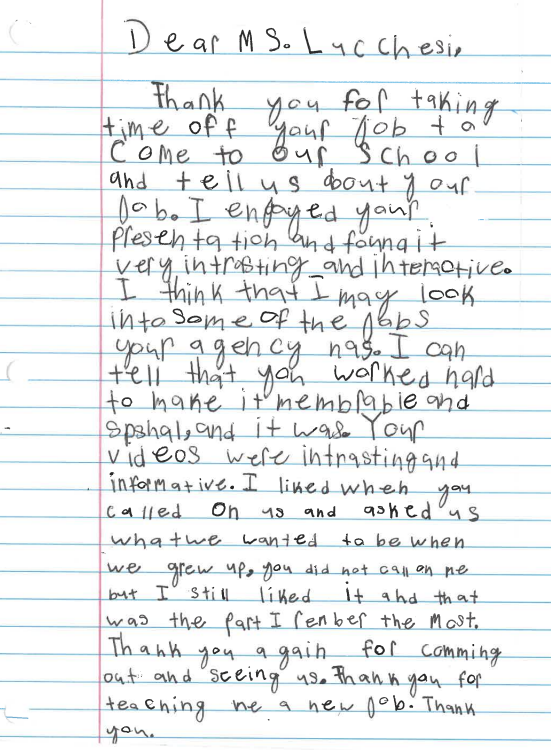 Dear MS. Lucchesi,
Thank you for taking
time off your job to
Come to our School
and tell us about your
Job. I enjoyed your
Presentation and found it
very intrasting and interactive.
I think that I may look
into some of the jobs
your agency has. I can
tell that you worked hard
to make it membrable and
Spshal, and it was. Your
videos were intrasting and
informative. I liked when you
called on us and asked us
what we wanted to be when
we grew up, you did not call on me
but I still liked it and that
was the part I rember the most.
Thank you again for comming
out and sceing us. Thank you for
teaching me a new job. Thank
you.